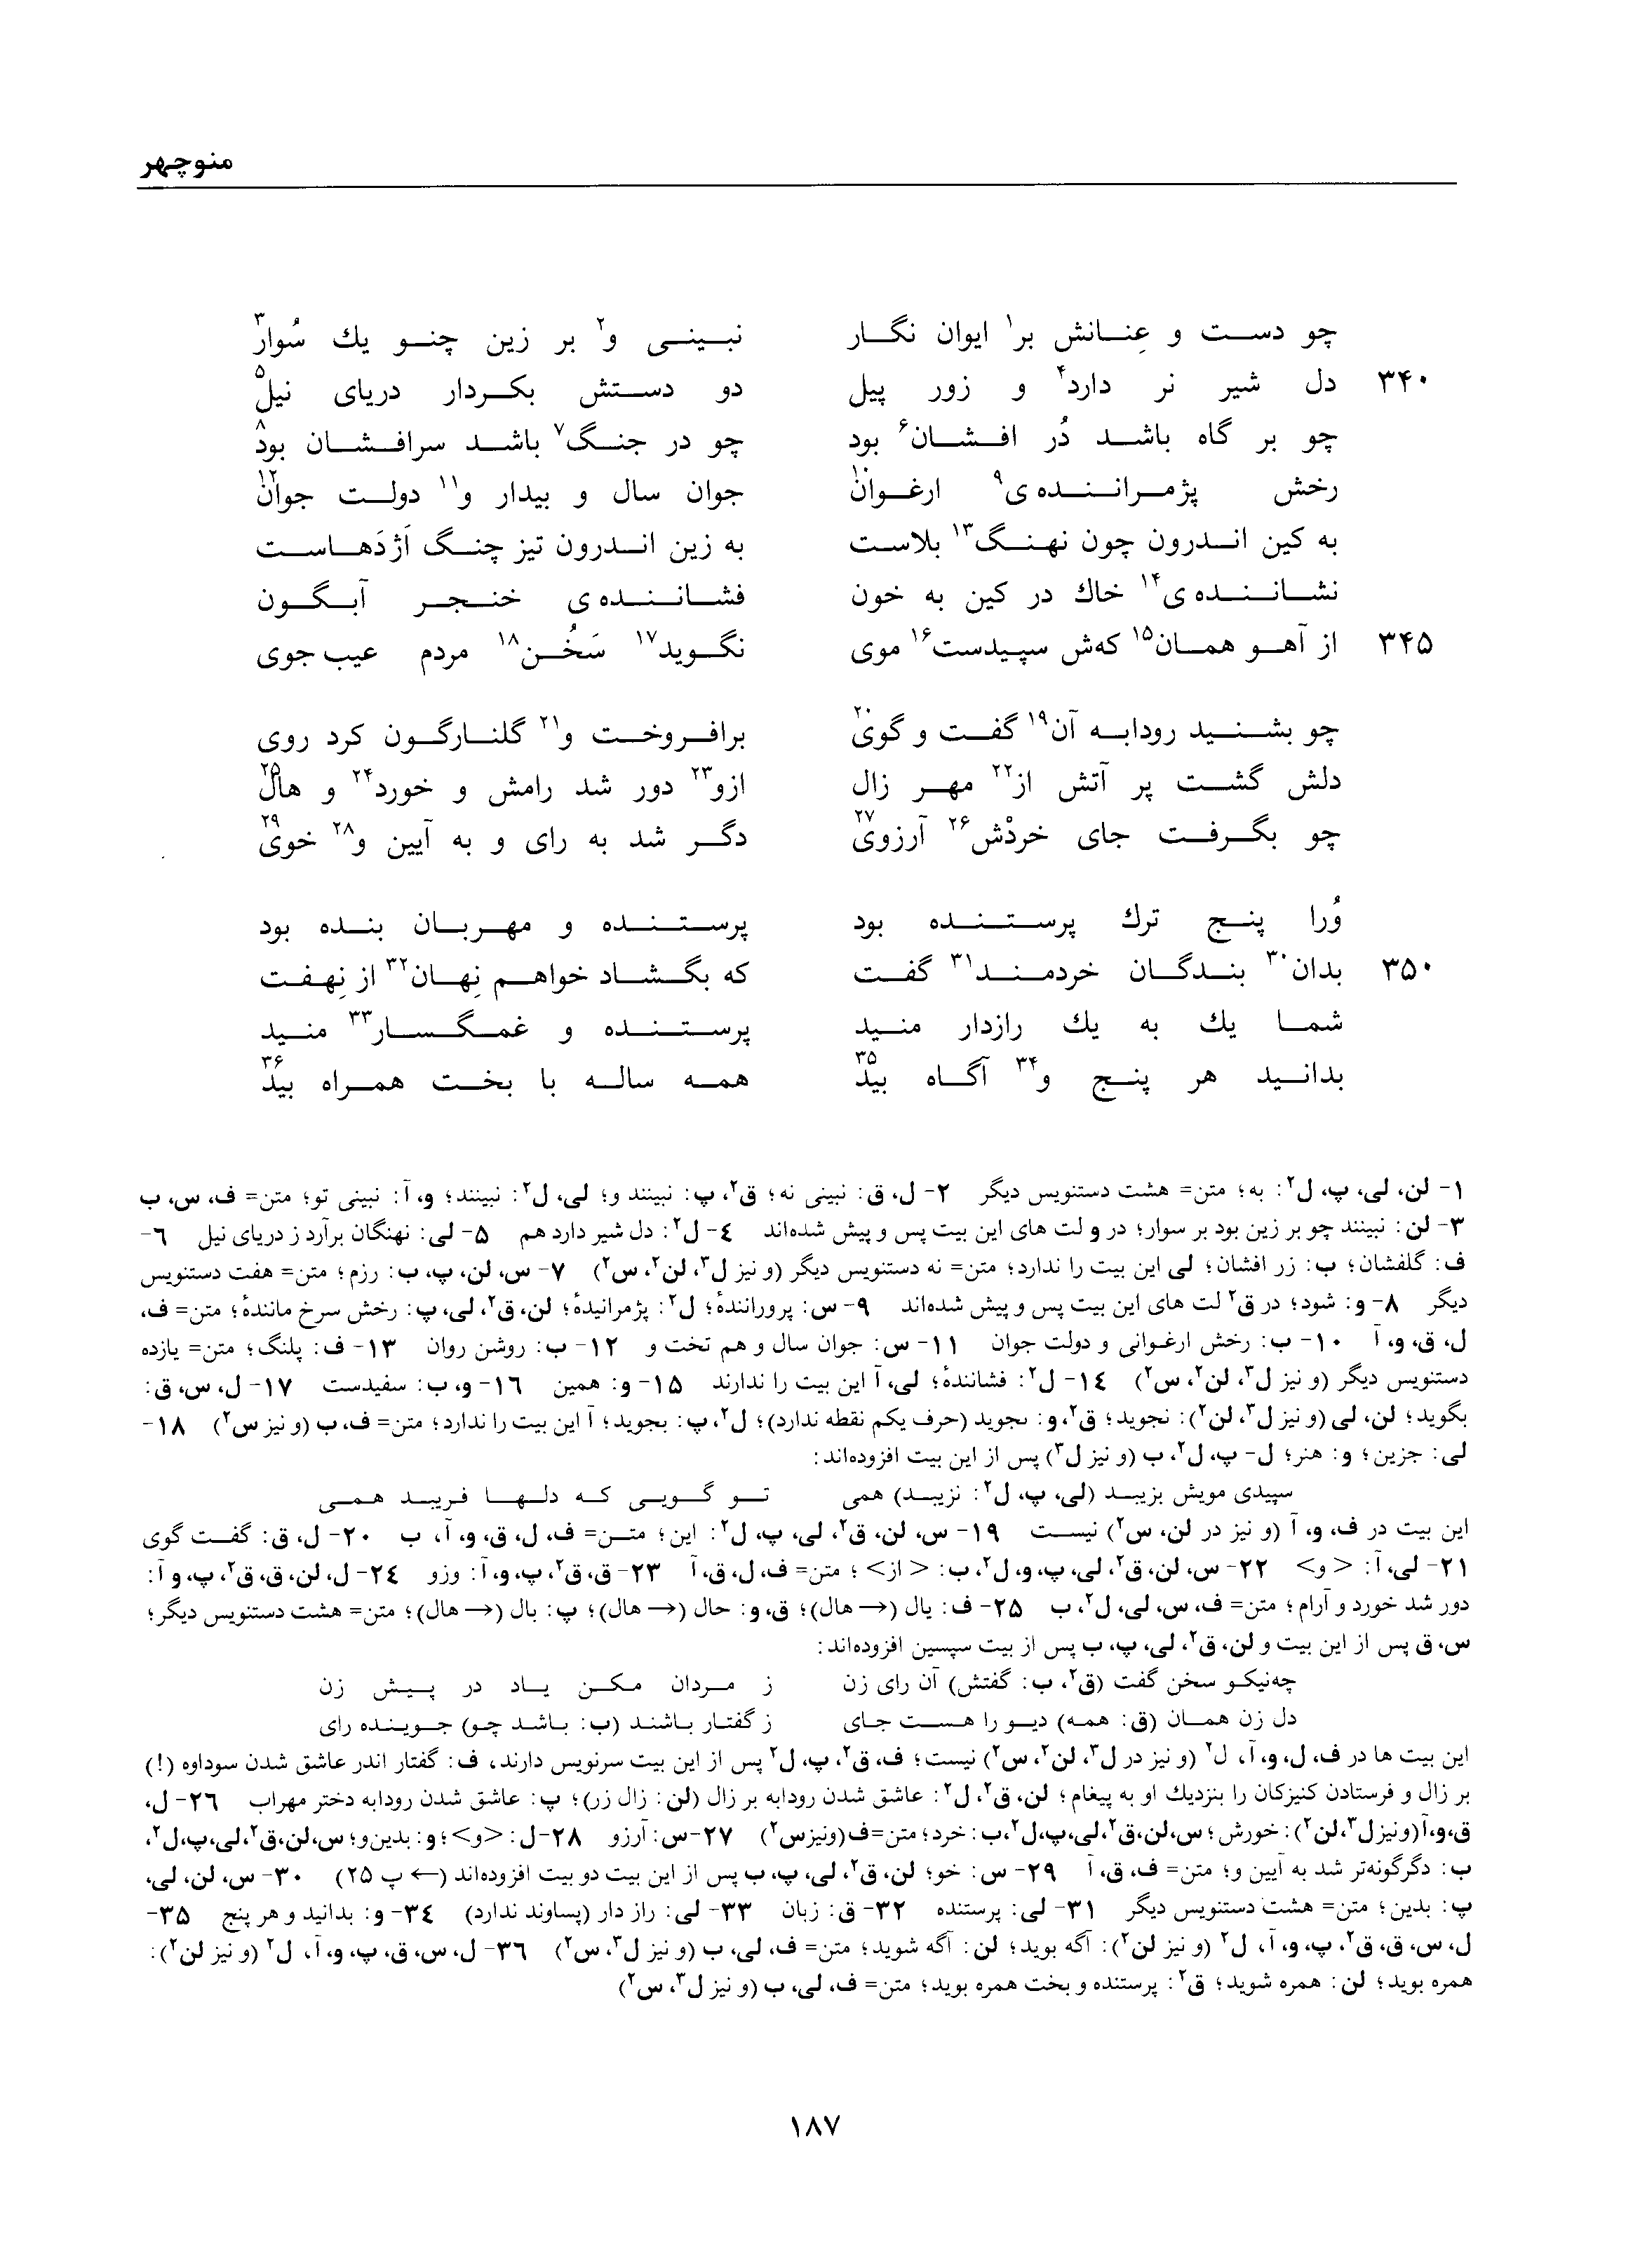 منوچهر
چو دست و عِنانش بر۱ ایوان نگار نبینی و۲ بر زین چنو یك سُوار۳
۳۴۰ دل شیر نر دارد۴ و زور پیل دو دستش بکردار دریای نیل۵
چو بر گاه باشد دُر افشان۶ بود چو در جنگ۷ باشد سرافشان بود۸
رخش پژمراننده‌ی۹ ارغوان۱۰ جوان سال و بیدار و۱۱ دولت جوان۱۲
به کین اندرون چون نهنگ۱۳ بلاست به زین اندرون تیز چنگ اَژدَهاست
نشاننده‌ی۱۴ خاك در کین به خون فشاننده‌ی خنجر آبگون
۳۴۵ از آهو همان۱۵ که‌ش سپیدست۱۶ موی نگوید۱۷ سَخُن۱۸ مردم عیب جوی
چو بشنید رودابه آن۱۹ گفت و گوی۲۰ برافروخت و۲۱ گلنارگون کرد روی
دلش گشت پر آتش از۲۲ مهر زال ازو۲۳ دور شد رامش و خورد۲۴ و هال۲۵
چو بگرفت جای خردْش۲۶ آرزوی۲۷ دگر شد به رای و به آیین و۲۸ خوی۲۹
وُرا پنج ترك پرستنده بود پرستنده و مهربان بنده بود
۳۵۰ بدان۳۰ بندگان خردمند۳۱ گفت که بگشاد خواهم نِهان۳۲ از نِهفت
شما یك به یك رازدار منید پرستنده و غمگسار۳۳ منید
بدانید هر پنج و۳۴ آگاه بید۳۵ همه ساله با بخت همراه بید۳۶
۱- لن، لی، پ، ل۲: به؛ متن= هشت دستنویس دیگر ۲- ل، ق: نبینی نه؛ ق۲، پ: نبینند و؛ لی، ل۲: نبینند؛ و، آ: نبینی تو؛ متن= ف، س، ب
۳- لن: نبینند چو بر زین بود بر سوار؛ در و لت های این بیت پس و پیش شده‌اند ۴- ل۲: دل شیر دارد هم ۵- لی: نهنگان برآرد ز دریای نیل ۶-
ف: گلفشان؛ ب: زر افشان؛ لی این بیت را ندارد؛ متن= نه دستنویس دیگر (و نیز ل۳، لن۲، س۲) ۷- س، لن، پ، ب: رزم؛ متن= هفت دستنویس
دیگر ۸- و: شود؛ در ق۲ لت های این بیت پس و پیش شده‌اند ۹- س: پرورانندهٔ؛ ل۲: پژمرانیدهٔ؛ لن، ق۲، لی، پ: رخش سرخ مانندهٔ؛ متن= ف،
ل، ق، و، آ ۱۰- ب: رخش ارغوانی و دولت جوان ۱۱- س: جوان سال و هم تخت و ۱۲- ب: روشن روان ۱۳- ف: پلنگ؛ متن= یازده
دستنویس دیگر (و نیز ل۳، لن۲، س۲) ۱۴- ل۲: فشانندهٔ؛ لی، آ این بیت را ندارند ۱۵- و: همین ۱۶- و، ب: سفیدست ۱۷- ل، س، ق:
بگوید؛ لن، لی (و نیز ل۳، لن۲): نجوید؛ ق۲، و: ىجوید (حرف یکم نقطه ندارد)؛ ل۲، پ: بجوید؛ آ این بیت را ندارد؛ متن= ف، ب (و نیز س۲) ۱۸-
لی: جزین؛ و: هنر؛ ل- پ، ل۲، ب (و نیز ل۳) پس از این بیت افزوده‌اند:
سپیدی مویش بزیبد (لی، پ، ل۲: نزیبد) همی تو گویی که دلها فریبد همی
این بیت در ف، و، آ (و نیز در لن، س۲) نیست ۱۹- س، لن، ق۲، لی، پ، ل۲: این؛ متن= ف، ل، ق، و، آ، ب ۲۰- ل، ق: گفت گوی
۲۱- لی، آ: <و> ۲۲- س، لن، ق۲، لی، پ، و، ل۲، ب: <از>؛ متن= ف، ل، ق، آ ۲۳- ق، ق۲، پ، و، آ: وزو ۲۴- ل، لن، ق، ق۲، پ، و آ:
دور شد خورد و آرام؛ متن= ف، س، لی، ل۲، ب ۲۵- ف: یال (→ هال)؛ ق، و: حال (→ هال)؛ پ: بال (→ هال)؛ متن= هشت دستنویس دیگر؛
س، ق پس از این بیت و لن، ق۲، لی، پ، ب پس از بیت سپسین افزوده‌اند:
چه‌نیکو سخن گفت (ق۲، ب: گفتش) آن رای زن ز مردان مکن یاد در پیش زن
دل زن همان (ق: همه) دیو را هست جای ز گفتار باشند (ب: باشد چو) جوینده رای
این بیت ها در ف، ل، و، آ، ل۲ (و نیز در ل۳، لن۲، س۲) نیست؛ ف، ق۲، پ، ل۲ پس از این بیت سرنویس دارند، ف: گفتار اندر عاشق شدن سوداوه (!)
بر زال و فرستادن کنیزکان را بنزدیك او به پیغام؛ لن، ق۲، ل۲: عاشق شدن رودابه بر زال (لن: زال زر)؛ پ: عاشق شدن رودابه دختر مهراب ۲۶- ل،
ق،و،آ(ونیزل۳،لن۲): خورش؛ س،لن،ق۲،لی،پ،ل۲،ب: خرد؛ متن=ف(ونیزس۲) ۲۷-س: آرزو ۲۸-ل: <و>؛ و: بدین‌و؛ س،لن،ق۲،لی،پ،ل۲،
ب: دگرگونه‌تر شد به آیین و؛ متن= ف، ق، آ ۲۹- س: خو؛ لن، ق۲، لی، پ، ب پس از این بیت دو بیت افزوده‌اند (← پ ۲۵) ۳۰- س، لن، لی،
پ: بدین؛ متن= هشت دستنویس دیگر ۳۱- لی: پرستنده ۳۲- ق: زبان ۳۳- لی: راز دار (پساوند ندارد) ۳۴- و: بدانید و هر پنج ۳۵-
ل، س، ق، ق۲، پ، و، آ، ل۲ (و نیز لن۲): آگه بوید؛ لن: آگه شوید؛ متن= ف، لی، ب (و نیز ل۳، س۲) ۳۶- ل، س، ق، پ، و، آ، ل۲ (و نیز لن۲):
همره بوید؛ لن: همره شوید؛ ق۲: پرستنده و بخت همره بوید؛ متن= ف، لی، ب (و نیز ل۳، س۲)
۱۸۷